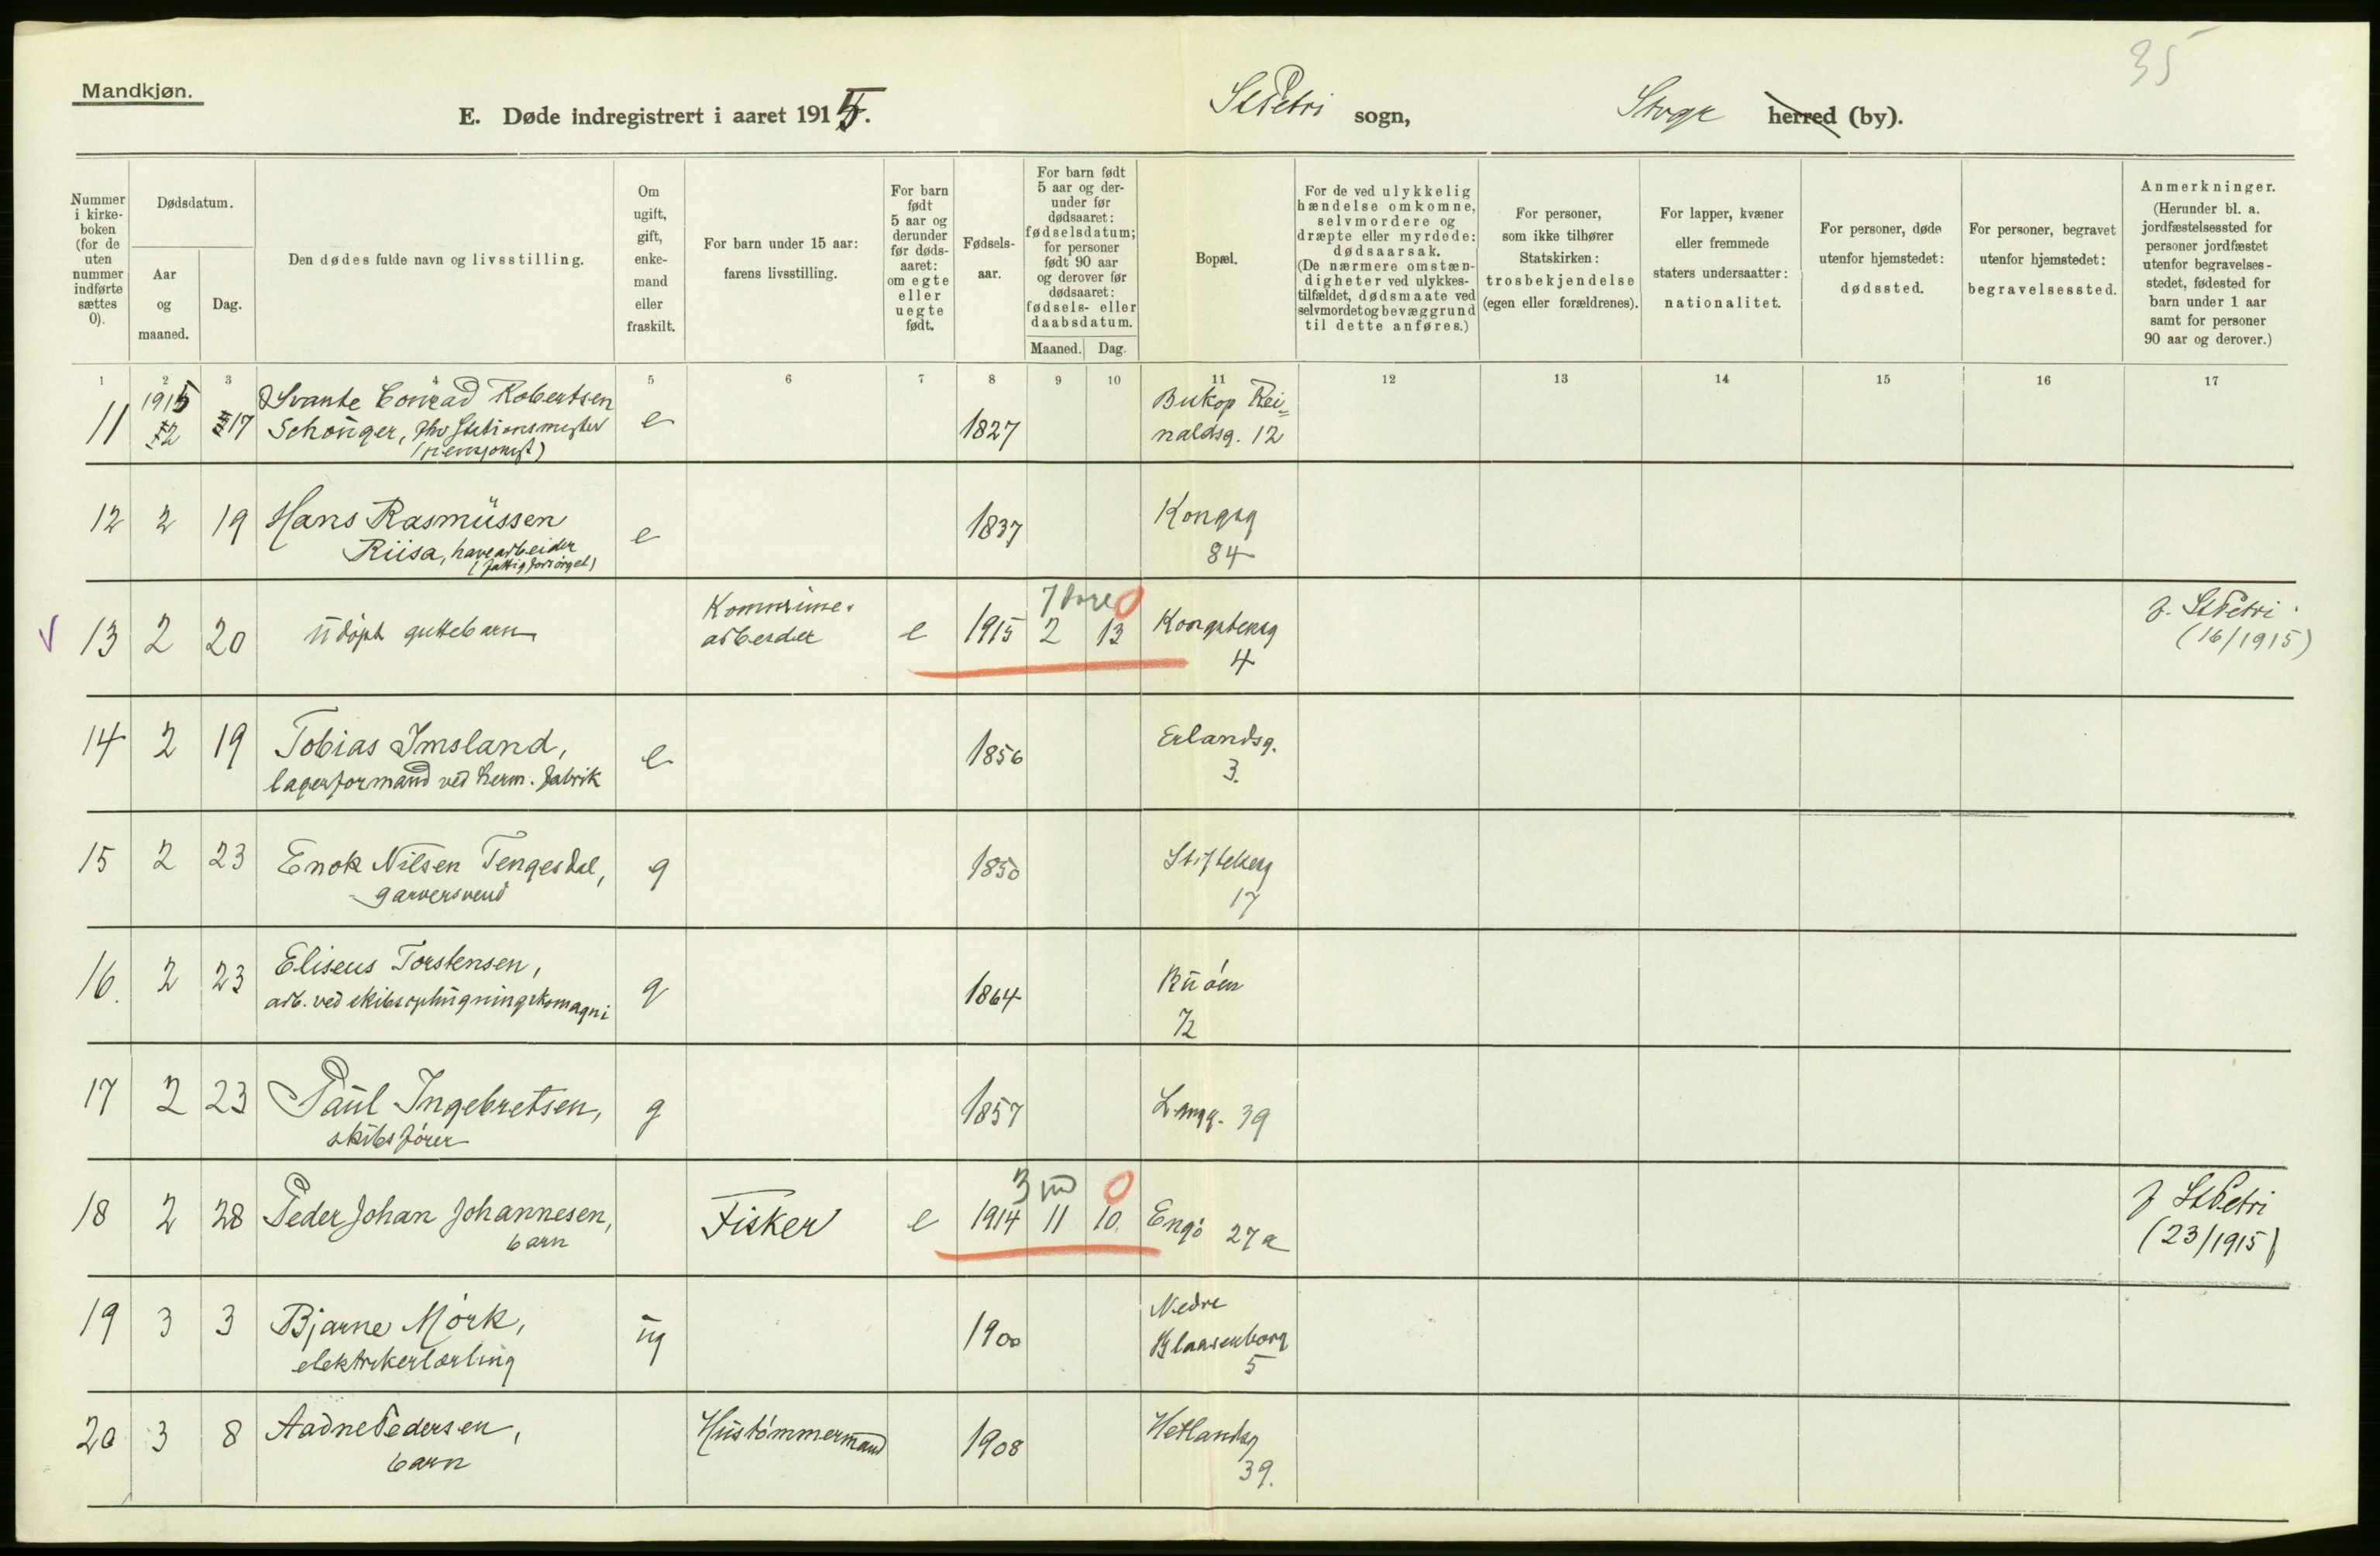 35
Mandkjøn.
E. Døde indregistrert i aaret 1915. St Petri sogn, Stvgr herred (by).
Nummer i kirkeboken (for de uten nummer indførte sættes 0).
Dødsdatum.
Aar og maaned.
Dag.
Den dødes fulde navn og livsstilling.
Om ugift, gift, enkemand eller fraskilt.
For barn under 15 aar: farens livsstilling.
For barn født 5 aar og derunder før dødsaaret: om egte eller uegte født.
Fødselsaar.
For barn født 5 aar og derunder før dødsaaret: fødselsdatum; for personer født 90 aar og derover før dødsaaret: fødsels- eller daabsdatum.
Maaned. Dag.
Bopæl.
For de ved ulykkelig hændelse omkomne, selvmordere og dræpte eller myrdede: dødsaarsak. (De nærmere omstændigheter ved ulykkestilfældet, dødsmaate ved selvmordet og bevæggrund til dette anføres.)
For personer, som ikke tilhører Statskirken: trosbekjendelse (egen eller forældrenes).
For lapper, kvæner eller fremmede staters undersaatter: nationalitet.
For personer, døde utenfor hjemstedet: dødssted.
For personer, begravet utenfor hjemstedet: begravelsessted.
Anmerkninger. (Herunder bl. a. jordfæstelsessted for personer jordfæstet utenfor begravelsesstedet, fødested for barn under 1 aar samt for personer 90 aar og derover.)
1 2 3 4 5 6 7 8 9 10 11 12 13 14 15 16 17
1915 Svante Conrad Robertsen Biskop Rei=
11 2 17 Schønger, fhv Stationsmester e 1827 naldsg. 12
(pensjonist)
12 2 19 Hans Rasmussen e 1837 Kongsg
Riisa, havearbeider 84
(fattigforsørget)
Kommune- 7 dage 0 f. St Petri
13 2 20 Udøpt guttebarn arbeider e 1915 2 13 Kongstensg (16/1915)
4
14 2 19 Tobias Imsland, e 1856 Erlandsg.
lagerformand ved herm. fabrik 3.
15 2 23 Enok Nilsen Tengesdal, g 1850 Stiftelsesg
garversvend 17
16. 2 23 Eliseus Torstensen, g 1864 Buøen
arb. ved skibsophugningskomagni 72
17 2 23 Paul Ingebretsen, g 1857 Langg. 39
skibsfører
3 md 0 f St Petri
18 2 28 Peder Johan Johannesen, Fisker e 1914 11 10. Engø 27a (23/1915)
barn
19 3 3 Bjarne Mørk, ug 1900 Nedre
elektrikerlærling Blaasenborg
5
20 3 8 Aadne Pedersen, Hustømmermand 1908 Hetlandsg
barn 39.